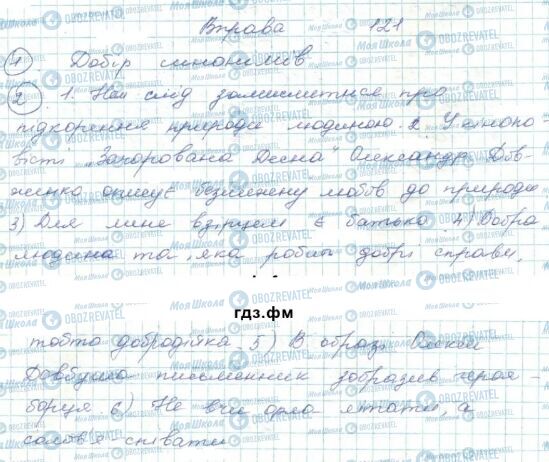 Вправа 121
1 Добір синонімів
2 1. Нам слід замислитися про
підкорення природи людиною. 2. У кінопо
вісті „Зачарована Десна" Олександр Дов-
женко описує безмежну любов до природи
3) Для мене взірцем є батько. 4) Добра
людина та, яка робить добрі справи,
гдз.фм
тобто добродійка 5) В образі Олекси
Довбуша письменник зобразив героя
борця. 6) Не вчи орла літати, а
солов'я співати